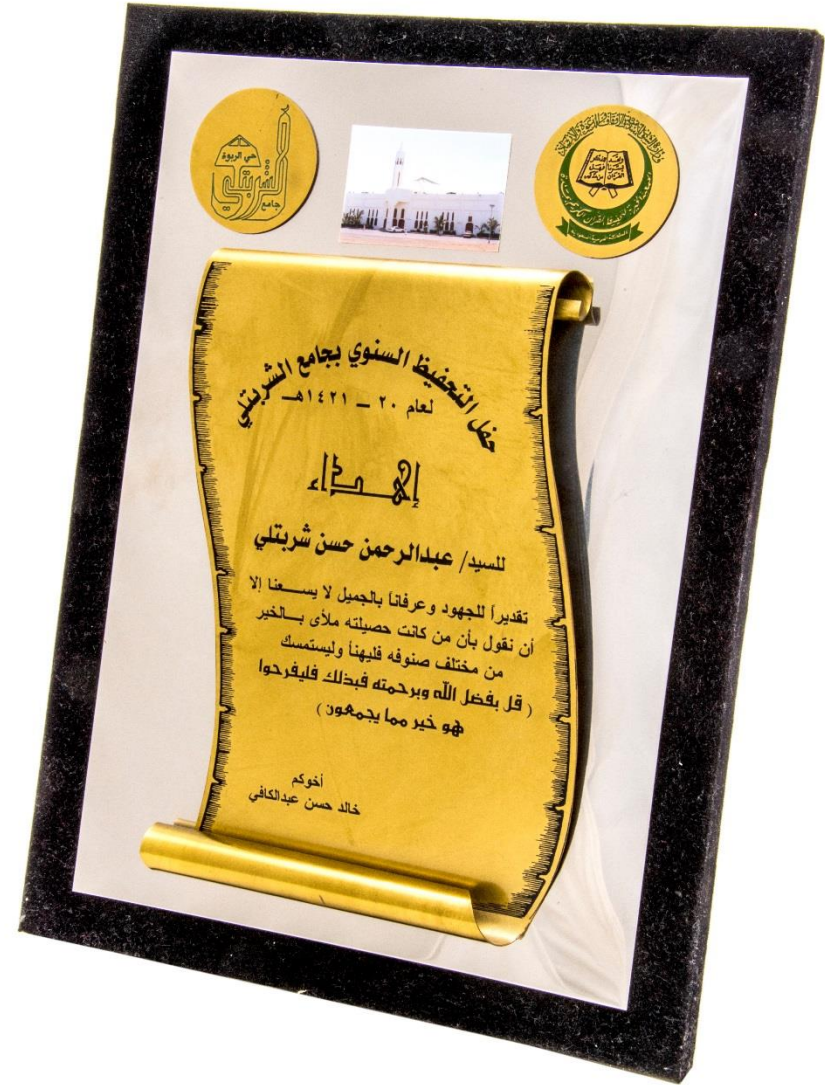 حي الربوة
الشربتلي
جامع
ولقد يسرنا القرآن للذكر فهل من مدكر
المملكة العربية السعودية
حفل التحفيظ السنوي بجامع الشربتلي
لعام ٢٠ ــ ١٤٢١هـ
إهــداء
للسيد/ عبدالرحمن حسن شربتلي
تقديراً للجهود وعرفاناً بالجميل لا يســعنا إلا
أن نقول بأن من كانت حصيلته ملأى بــالخير
من مختلف صنوفه فليهنأ وليستمسك
( قل بفضل الله وبرحمته فبذلك فليفرحوا
هو خير مما يجمعون )
أخوكم
خالد حسن عبدالكافي